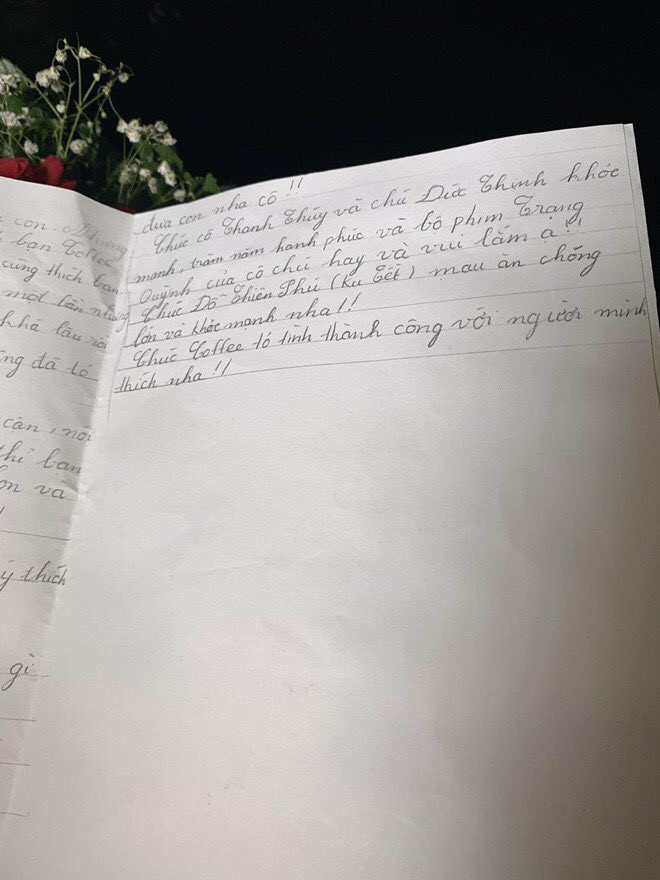 con. Nhưng
bạn Coffee
cũng thích bạn
một lần nhưng
đã tỏ
nói
thì bạn
và
thích
gì
đưa con nha cô !!
Chúc cô Thanh Thúy và chú Đức Thịnh khỏe
mạnh, trăm năm hạnh phúc và bộ phim Trạng
Quỳnh của cô chú hay và vui lắm ạ!!
Chúc Đỗ Thiên Phú (Ku Tết) mau ăn chóng
lớn và khỏe mạnh nha!!
Chúc Coffee tỏ tình thành công với người mình
thích nha!!